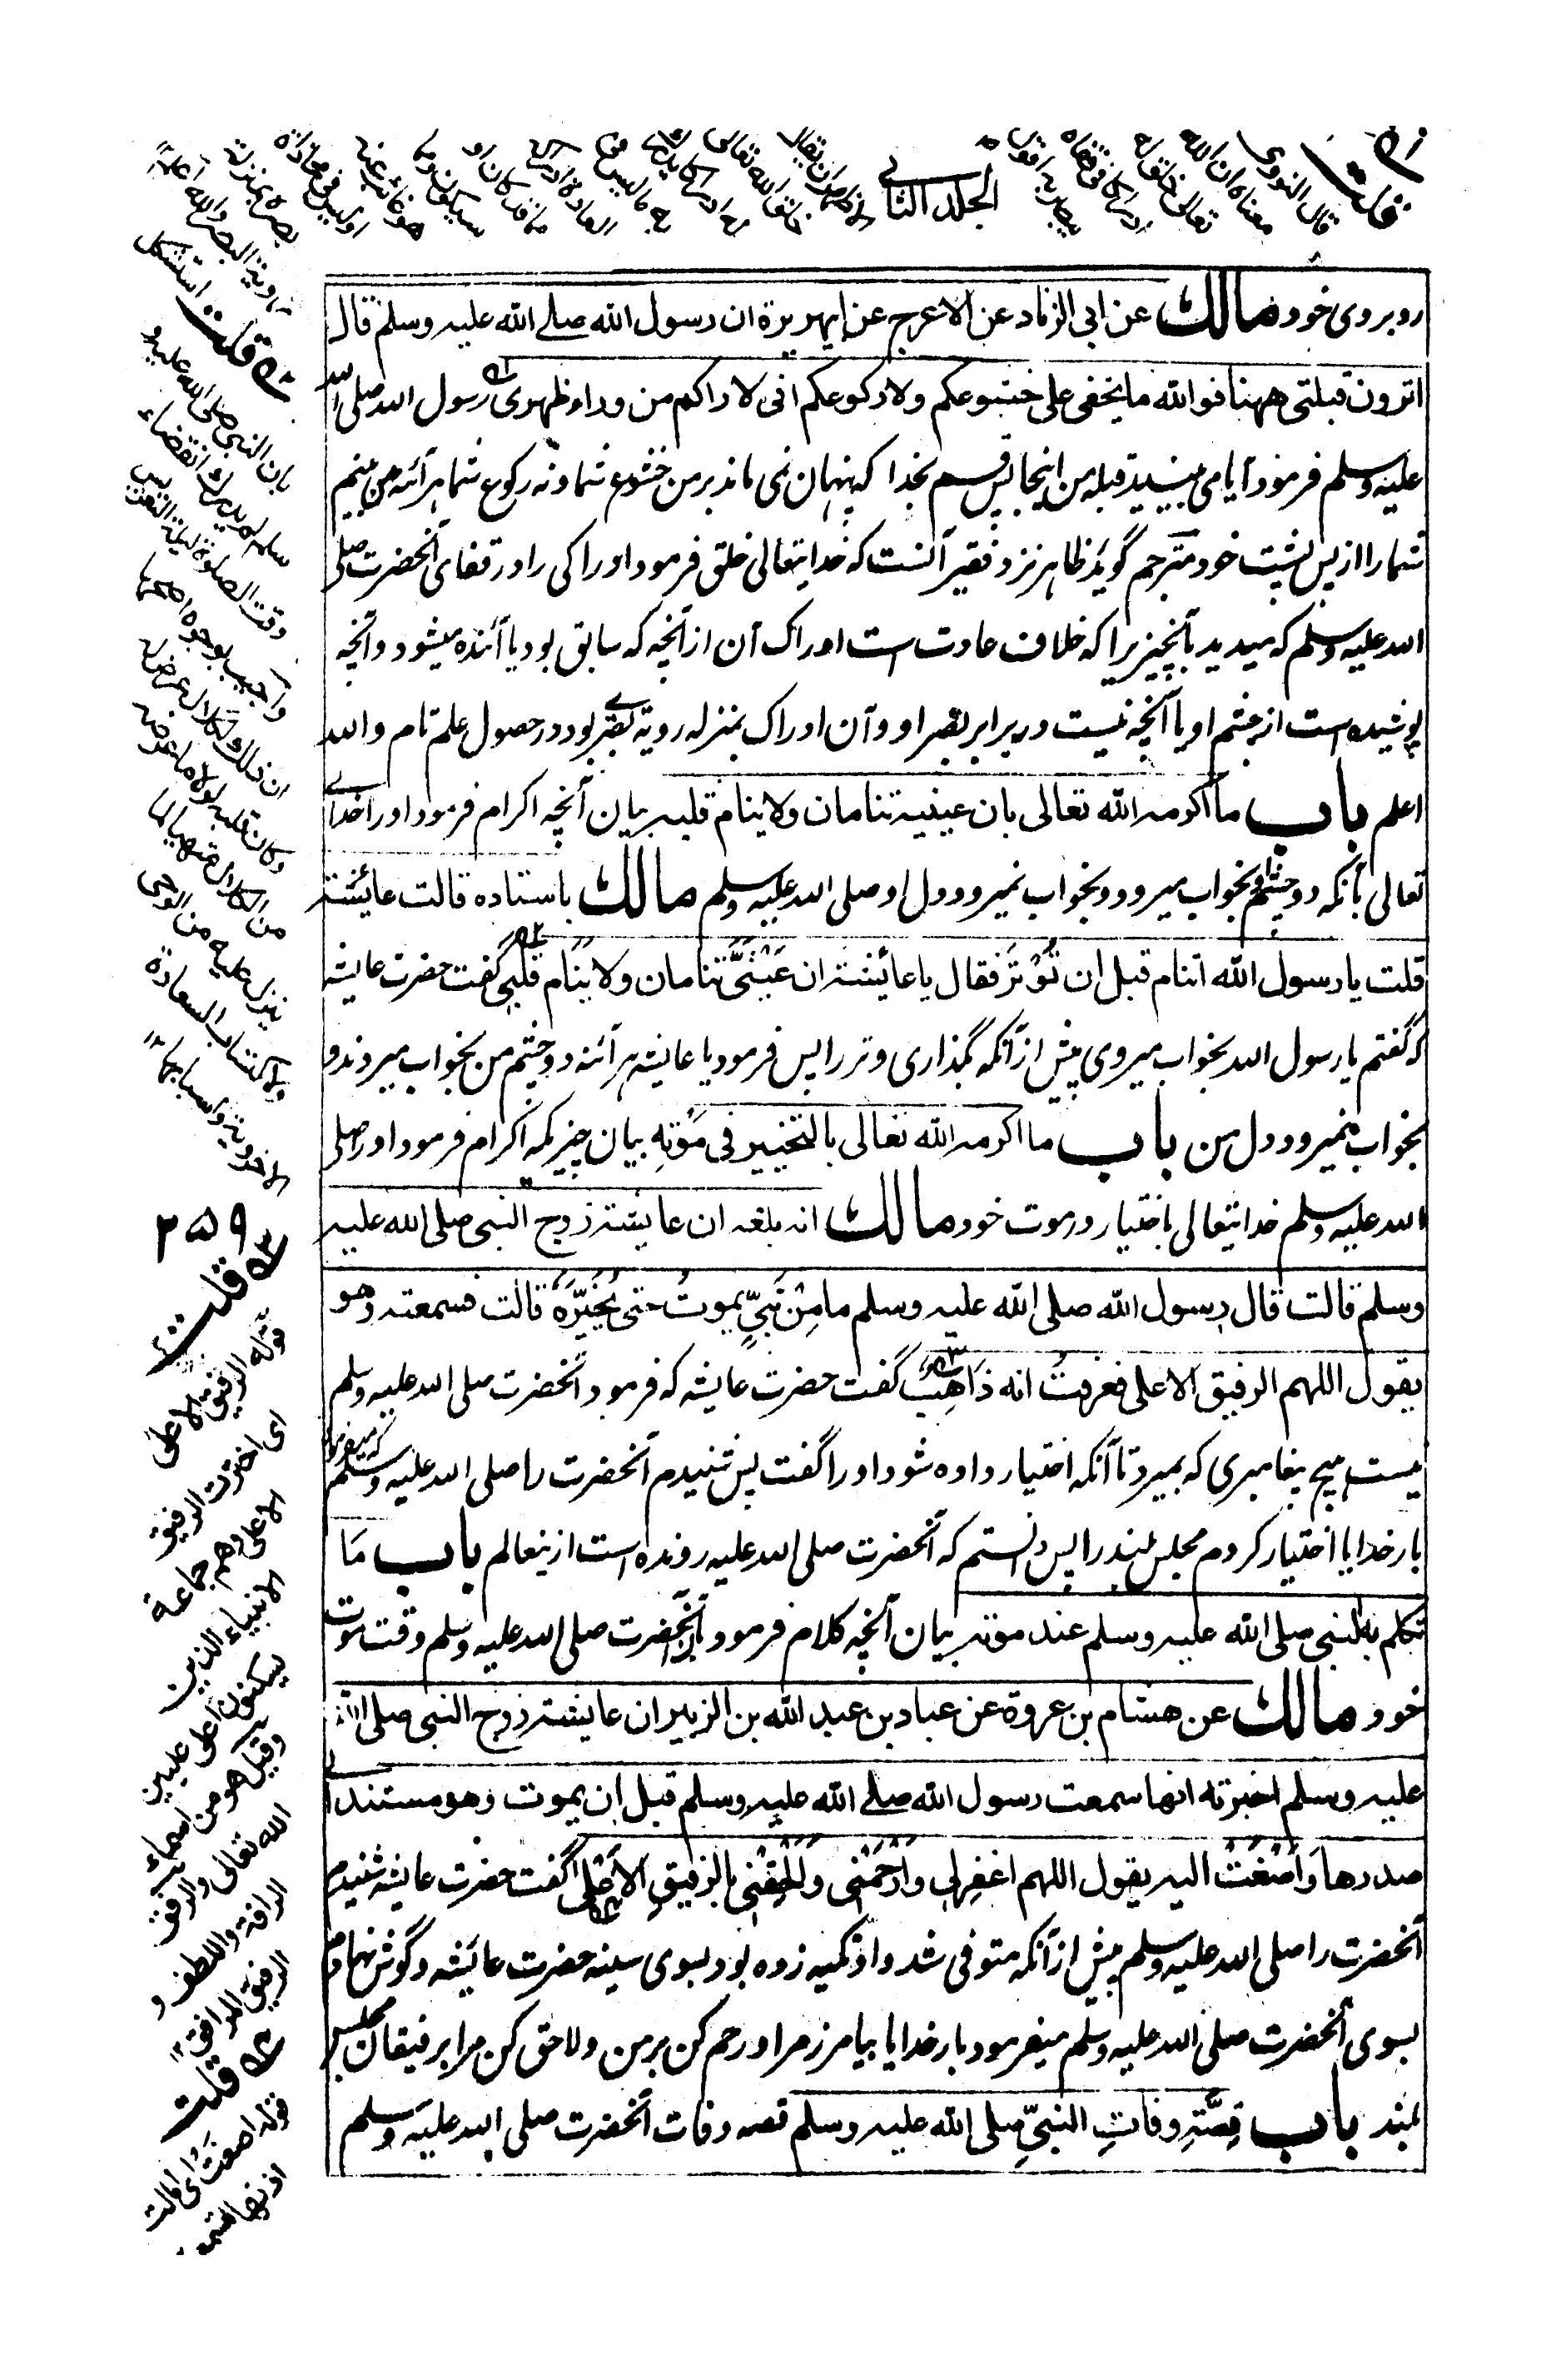 الجلد الثانی
روبروی خود مالک عن ابی الزناد عن الاعرج عن ابی هریرة ان رسول الله صلے الله علیه وسلم قال
اترون قبلتی ههنا فوالله ما یخفی علی خشوعکم ولا رکوعکم انی لاراکم من وراء ظهری رسول الله صلی الله
علیه وسلم فرمود آیا می بینید قبله من اینجا پس قسم بخدا که پنهان نمی ماند بر من خشوع شما و نه رکوع شما هر آئنه من بینم
شما را از پس پشت خود مترجم گوید ظاهر نزد فقیر آنست که خدایتعالی خلق فرمود ادراکی را در قفای آنحضرت صلی
الله علیه وسلم که میدید بآنچیزیرا که خلاف عادت است ادراک آن از آنچه که سابق بود یا آئنده میشود و آنچه
پوشیده است از چشم او یا آنچه نیست در برابر بصر او و آن ادراک بمنزله رویة بصری بود در حصول علم تام والله
اعلم باب ما اکرمه الله تعالی بان عینیه تنامان ولا ینام قلبه بیان آنچه اکرام فرمود او را خدای
تعالی بآنکه دو چشم بخواب میرود و بخواب نمیرود دل او صلی الله علیه وسلم مالک باسناده قالت عائشة
قلت یا رسول الله اتنام قبل ان توتر فقال یا عائشة ان عَیْنَیَّ تنامان ولا یَنَام قلبی گفت حضرت عایشه
که گفتم یا رسول الله بخواب میروی پیش از آنکه بگذاری وتر را پس فرمود یا عایشه هر آئنه دو چشم من بخواب میروند و
بخواب نمیرود دل من باب ما اکرمه الله تعالی بالتخییر فی مَوْتِهِ بیان چیزیکه اکرام فرمود او را صلی
الله علیه وسلم خدایتعالی باختیار در موت خود مالک انه بلغه ان عایشة زوج النبی صلی الله علیه
وسلم قالت قال رسول الله صلی الله علیه وسلم ما مِنْ نَبِیٍّ یموتُ حتی یُخَیَّرَ قالت فسمعته وهو
یقول اللهم الرفیق الاعلی فعرفتُ انه ذَاهِبٌ گفت حضرت عایشه که فرمود آنحضرت صلی الله علیه وسلم
نیست هیچ پیغامبری که بمیرد تا آنکه اختیار داده شود او را گفت پس شنیدم آنحضرت را صلی الله علیه وسلم که میفرمود
بار خدایا اختیار کردم مجلس بلند را پس دانستم که آنحضرت صلی الله علیه رونده است ازینعالم باب مَا
تکلم به النبی صلی الله علیه وسلم عند موته بیان آنچه کلام فرمود بآن آنحضرت صلی الله علیه وسلم وقت موت
خود مالک عن هشام بن عروة عن عباد بن عبد الله بن الزبیر ان عایشة زوج النبی صلی الله
علیه وسلم اخبرته انها سمعت رسول الله صلے الله علیه وسلم قبل ان یموت وهو مستند الی
صدرها وَاَصْغَتْ الیه یقول اللهم اغفرلی وَارْحَمْنِی وَاَلْحِقْنِی بالرفیقِ الاَعْلی گفت حضرت عایشه شنیدم
آنحضرت را صلی الله علیه وسلم پیش از آنکه متوفی شد و او تکیه زده بود بسوی سینه حضرت عائشه و گوش نهادم
بسوی آنحضرت صلی الله علیه وسلم میفرمود بار خدایا بیامرز مرا و رحم کن بر من و لاحق کن مرا برفیقان مجلس
بلند باب قِصَّةِ وفاتِ النبیِّ صلی الله علیه وسلم قصه وفات آنحضرت صلی الله علیه وسلم
قلت
قال النووی
معناه ان الله
تعالی خلق له
ادراکا فی قفاه
یبصر به
قلت استشکل
بان النبی صلی الله علیه و
سلم لم یدرک انقضاء
وقت الصلوة لیلة التعریس
واجیب بوجوه اصحها
وکان قلبه لولا ما عرضه
ینزل علیه من الوحی
۲۵۹
قلت
قوله الرفیق الاعلی
ای اخترت الرفیق
الاعلی وهم جماعة
الانبیاء الذین
یسکنون اعلی علیین
وقیل هو من اسماء
الله تعالی والرفق
الرافة واللطف و
الرفیق الرافق
قلت
قوله اصغت ای امالت
اذنها